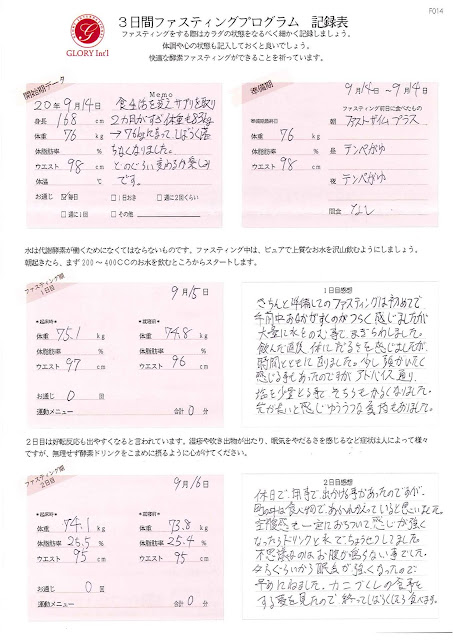 F014
GLORY Int'l
3日間ファスティングプログラム 記録表
ファスティングをする際はカラダの状態をなるべく細かく記録しましょう。
体調や心の状態も記入しておくと良いでしょう。
快適な酵素ファスティングができることを祈っています。
開始期データ
20年9月14日
身長 168 cm
体重 76 kg
体脂肪率 %
ウエスト 98 cm
体温 ℃
お通じ ☑毎日 □1日おき □週に2回くらい
□週に1回 □その他
Memo
食生活を変えサプリを取り
2カ月かけ体重も83kg
→76kgに
なくなりました。
どのくらい変わるか楽しみ
です。
準備期
9月14日〜9月14日
準備期最終日
体重 76 kg
体脂肪率 %
ウエスト 98 cm
ファスティング前日に食べたもの
朝 ファストザイムプラス
昼 テンペがゆ
夜 テンペがゆ
間食 なし
水は代謝酵素が働くためになくてはならないものです。ファスティング中は、ピュアで上質なお水を沢山飲むようにしましょう。
朝起きたら、まず200〜400CCのお水を飲むところからスタートします。
ファスティング期
1日目
9月15日
★起床時★
体重 75.1 kg
体脂肪率 %
ウエスト 97 cm
★就寝前★
体重 74.8 kg
体脂肪率 %
ウエスト 96 cm
お通じ 0 回
運動メニュー 合計 0 分
1日目感想
きちんと準備してのファスティングは初めてで
午前中おなかがすくのがつらく感じましたが
大量に水をのむ事でまぎらわしました。
飲んだ直後、体にだるさを感じましたが、
時間とともに治りました。少し頭がいたく
感じる事もあったのですが、アドバイス通り、
塩を少量とる事でそちらもかるくなりました。
先が長いと感じゆううつな気持もありました。
2日目は好転反応も出やすくなると言われています。湿疹や吹き出物が出たり、眠気をやだるさを感じるなど症状は人によって様々
ですが、無理せず酵素ドリンクをこまめに摂るように心がけてください。
ファスティング期
2日目
9月16日
★起床時★
体重 74.1 kg
体脂肪率 25.5 %
ウエスト 95 cm
★就寝前★
体重 73.8 kg
体脂肪率 25.4 %
ウエスト 95 cm
お通じ 0 回
運動メニュー 合計 0 分
2日目感想
休日で、用事で出かける事があったのですが、
町の中は食べ物であふれかえっていると思いました。
空腹感も一定におちついて、感じが強く
なったらドリンクと水でちょうせつしてました。
不思議なのはお腹が鳴らない事でした。
夕方くらいから眠気が強くなったので
早めにねました。カニづくしの食事を
する夢を見たので終ってしばらくしたら食べます。